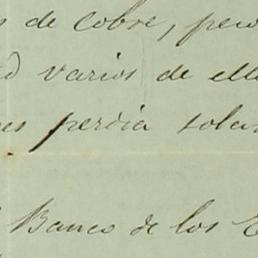 de cobre, pero
varios de ell
perdia sola
Banco de los E